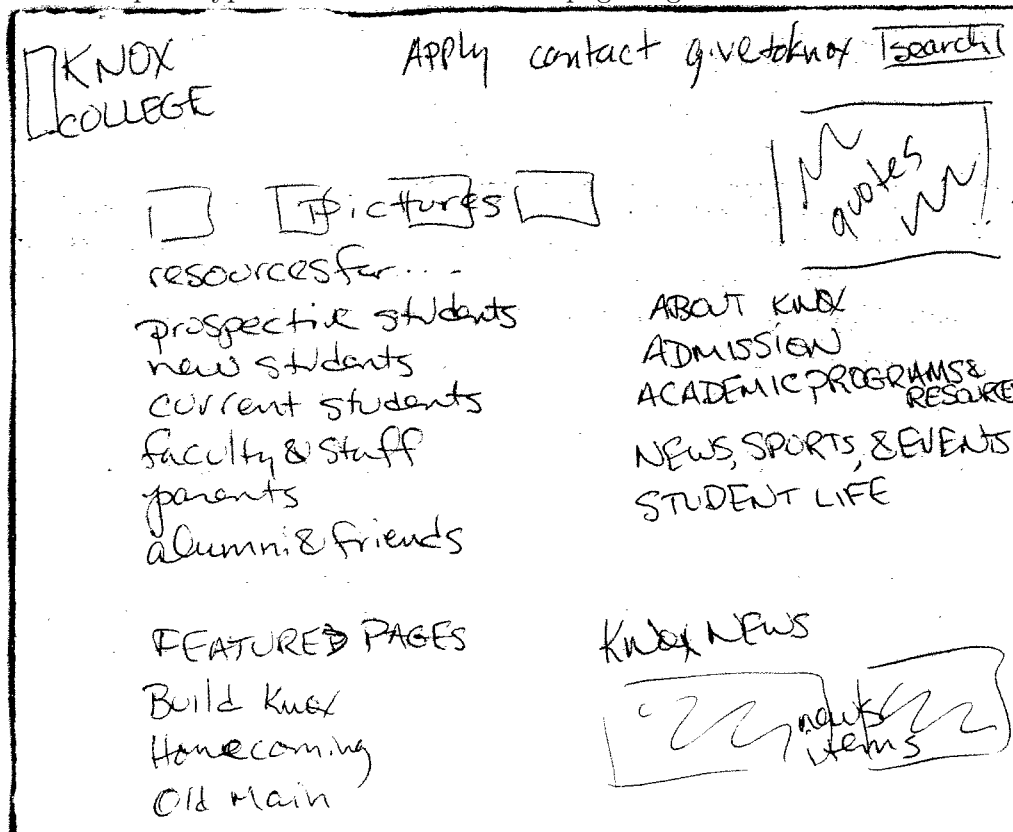 KNOX
COLLEGE
Apply contact givetoknox search
quotes
Pictures
resources for....
prospective students
new students
current students
faculty & staff
parents
alumni & friends
ABOUT KNOX
ADMISSION
ACADEMIC PROGRAMS &
RESOURCE
NEWS, SPORTS, & EVENTS
STUDENT LIFE
FEATURED PAGES
Build Knox
Homecoming
Old Main
KNOX NEWS
news
items